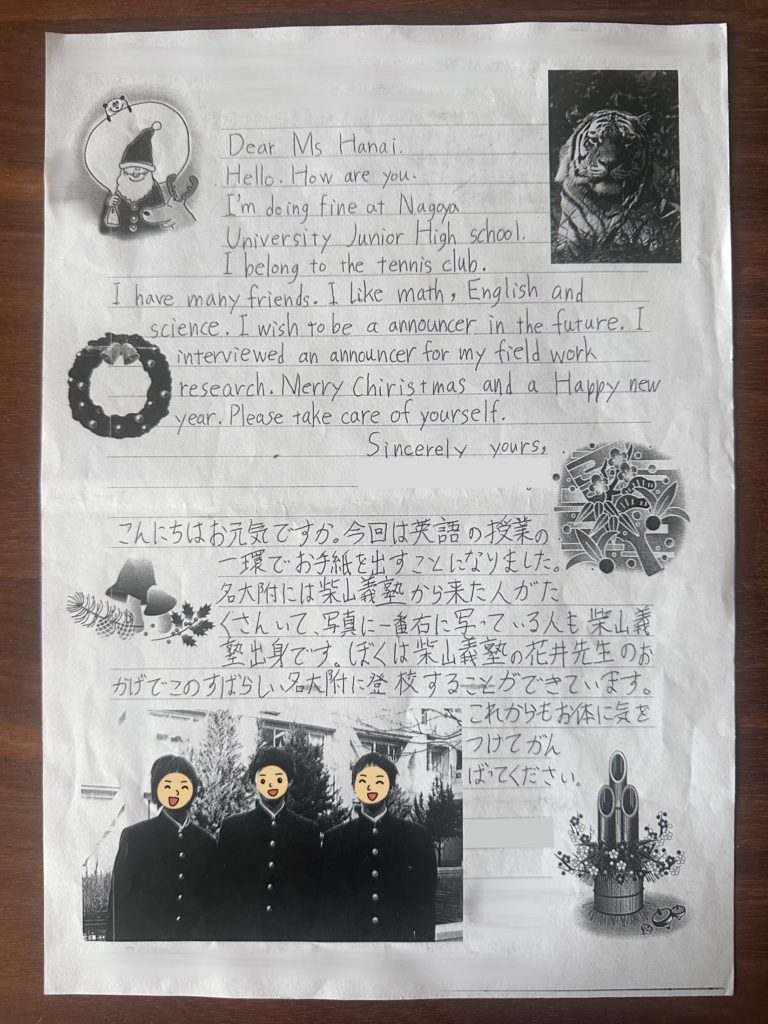 Dear Ms Hanai.
Hello. How are you.
I'm doing fine at Nagoya
University Junior High school.
I belong to the tennis club.
I have many friends. I like math, English and
science. I wish to be a announcer in the future. I
interviewed an announcer for my field work
research. Merry Chiristmas and a Happy new
year. Please take care of yourself.
Sincerely yours,
こんにちはお元気ですか。今回は英語の授業の
一環でお手紙を出すことになりました。
名大附には柴山義塾から来た人がた
くさんいて、写真に一番右に写っている人も柴山義
塾出身です。ぼくは柴山義塾の花井先生のお
かげでこのすばらしい名大附に登校することができています。
これからもお体に気を
つけてがん
ばってください。